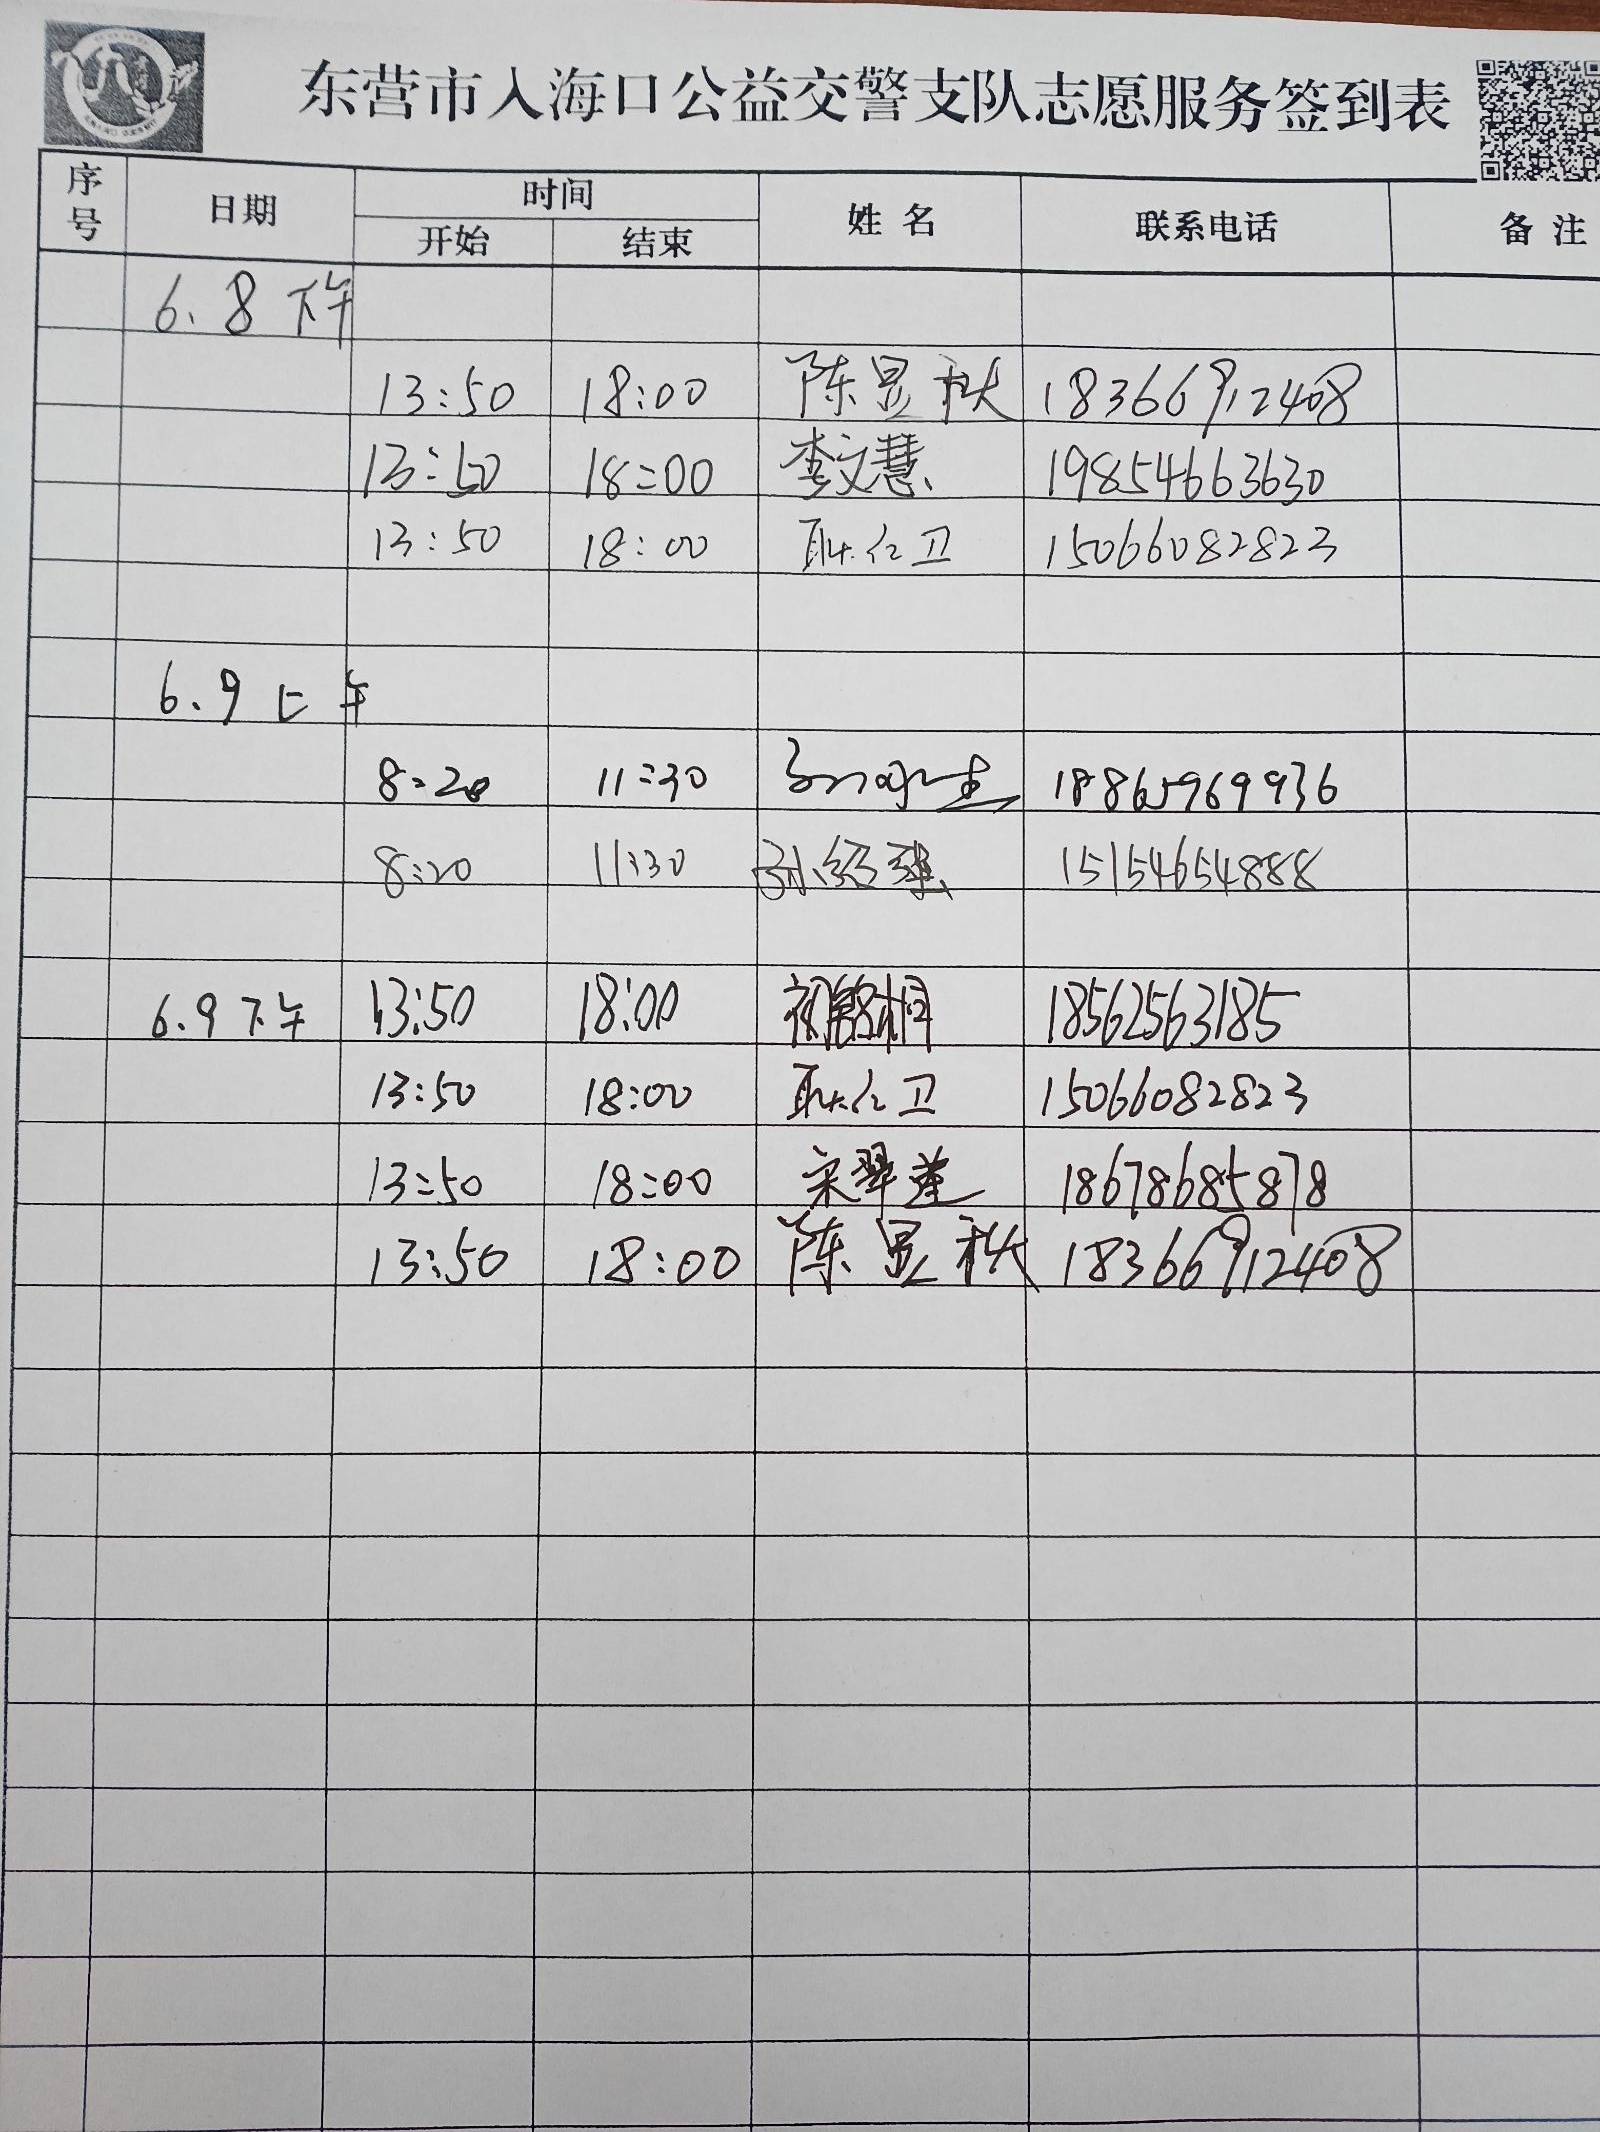 东营市入海口公益交警支队志愿服务签到表
序号 日期 时间 姓名 联系电话 备注
开始 结束
6.8 下午
13:50 18:00 陈显秋 18366912408
13:50 18:00 李文慧 19854663630
13:50 18:00 耿仁卫 15066082823
6.9 上午
8:20 11:30 18865969936
8:20 11:30 孙经强 15154654888
6.9 下午 13:50 18:00 桐 18562563185
13:50 18:00 耿仁卫 15066082823
13:50 18:00 宋翠莲 18678685878
13:50 18:00 陈显秋 18366912408